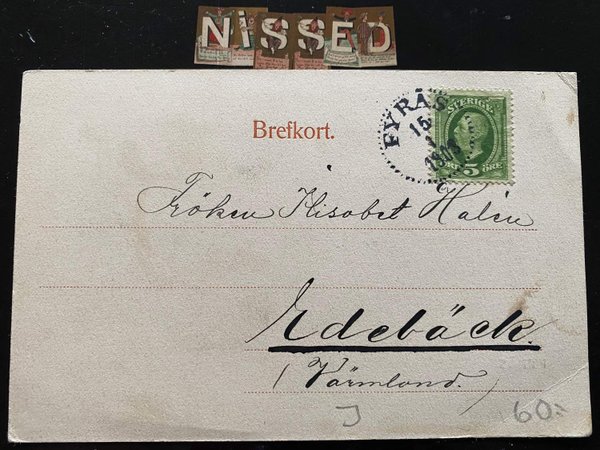 NiSSED
Brefkort.
FYRÅS
15
1
1903
SVERIGE
5 ÖRE
Fröken Elisabet Halén
Edebäck.
(Värmland.)
60:-